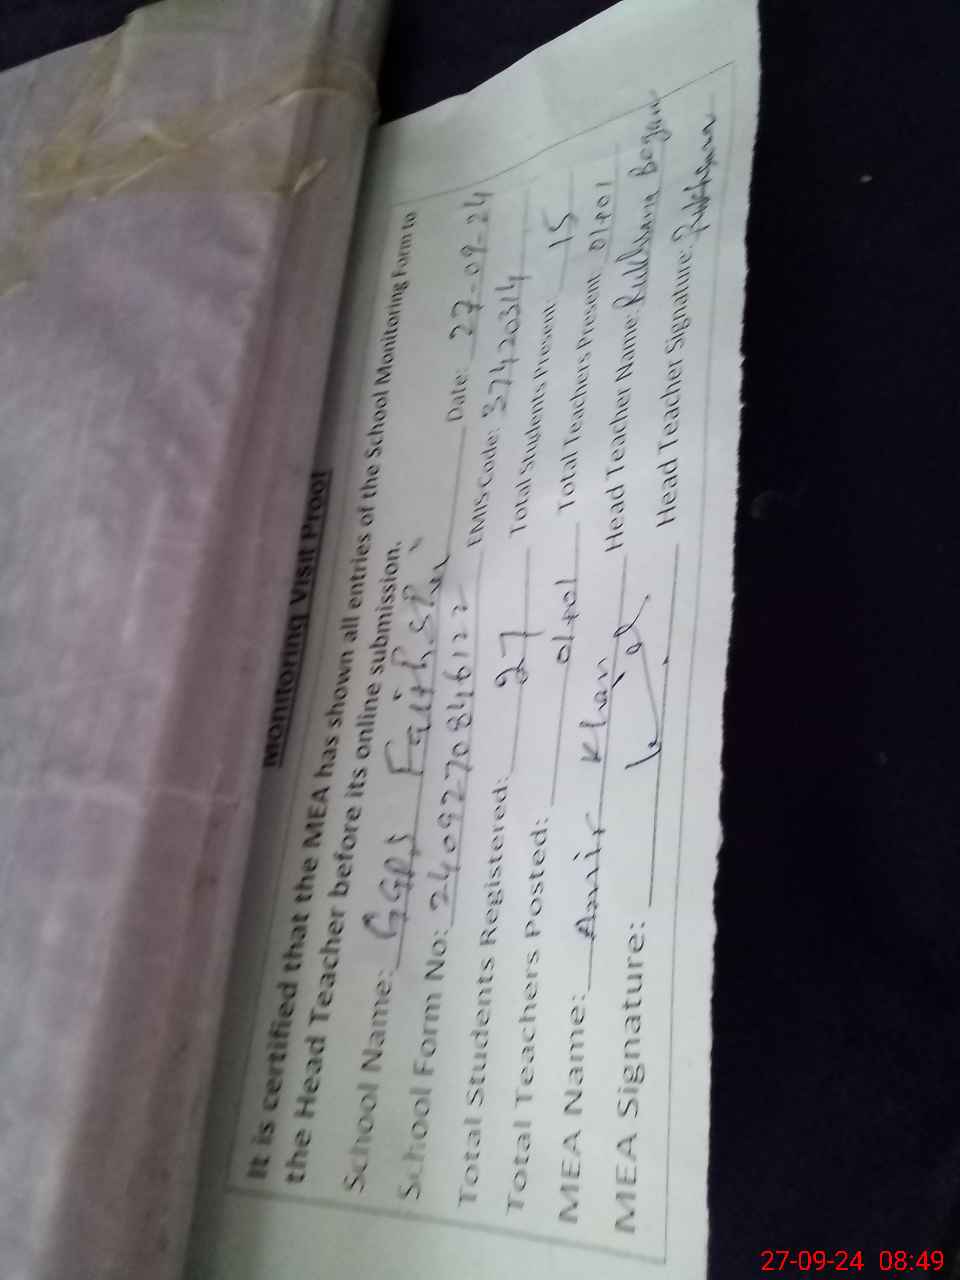 Monitoring Visit Proof
It is certified that the MEA has shown all entries of the School Monitoring Form to
the Head Teacher before its online submission.
School Name: GGPS Date: 27-09-24
School Form No: 240927084612 EMIS Code: 37420314
Total Students Registered: 27 Total Students Present: 15
Total Teachers Posted: 01+01 Total Teachers Present: 01+01
MEA Name: Amir Khan Head Teacher Name: Rukhsana Begam
MEA Signature: Head Teacher Signature: Rukhsana
27-09-24 08:49